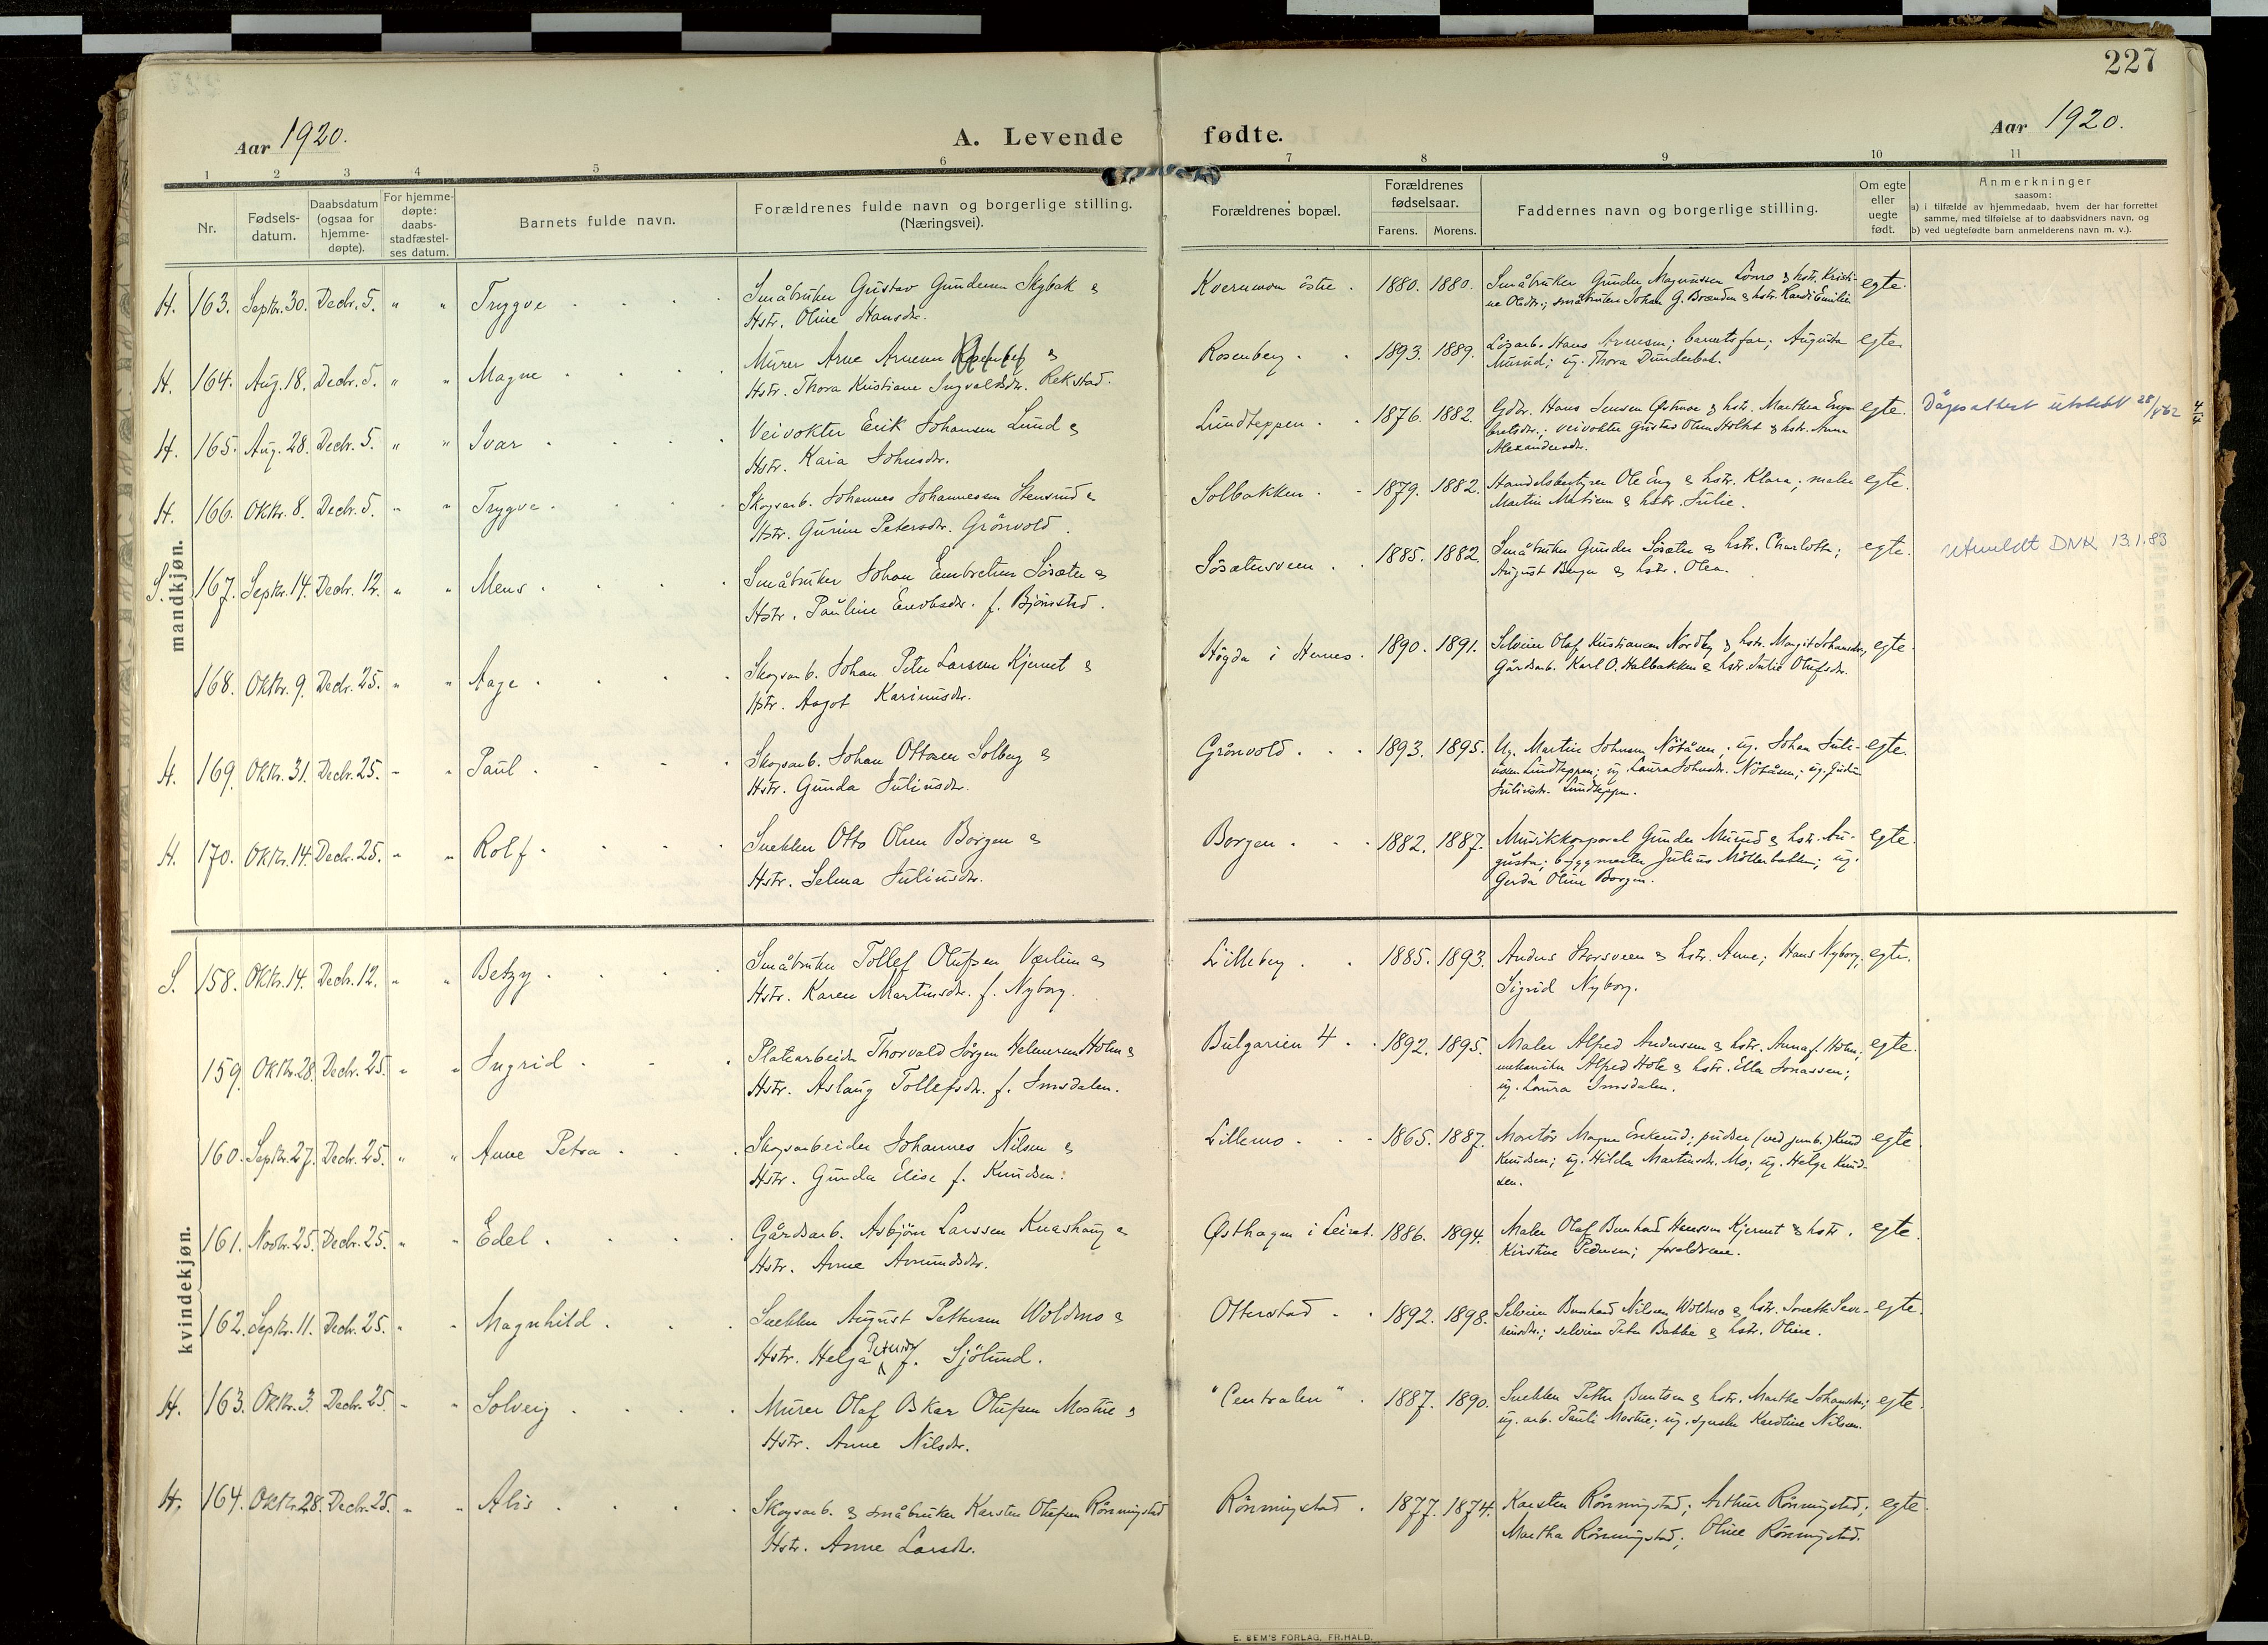 227
Aar 1920.
A. Levende fødte.
Aar 1920.
1 2 3 4 5 6 7 8 9 10 11
Nr.
Fødsels-
datum.
Daabsdatum
(ogsaa for
hjemme-
døpte).
For hjemme-
døpte:
daabs-
stadfæstel-
ses datum.
Barnets fulde navn.
Forældrenes fulde navn og borgerlige stilling.
(Næringsvei).
Forældrenes bopæl.
Forældrenes
fødselsaar.
Farens. Morens.
Faddernes navn og borgerlige stilling.
Om egte
eller
uegte
født.
Anmerkninger
saasom:
a) i tilfælde av hjemmedaab, hvem der har forrettet
samme, med tilføielse af to daabsvidners navn, og
b) ved uegtefødte barn anmelderens navn m. v.).
mandkjøn.
H. 163. Septr. 30. Decbr. 5. " " Trygve . Småbruker Gustav Gundersen Skybak &
Hstr. Oline Hansdr.
Kvernmoen östre . 1880. 1880. Småbruker Gunder Magnussen Lönro & hstr. Kristi-
ne Olsdtr.; småbruker Johan G. Brænden & hstr. Randi Emilie egte.
H. 164. Aug. 18. Decbr. 5. " " Magne . Murer Arne Arnesen &
Hstr. Thora Kristiane Ingvaldsdr. Rekstad.
Rosenberg . 1893. 1889. Lösarb. Hans Arnesen; barnets far; Augusta
Murud; ug. Thora Dunderbak. egte
H. 165. Aug. 28. Decbr. 5. " " Ivar . Veivokter Erik Johansen Lund &
Hstr. Kaia Johnsdr.
Lundteppen . 1876. 1882. Gdbr. Hans Jensen Østmoe & hstr. Marthea Enge-
bretsdr.; veivokter Gustav Olsen Holset & hstr. Anna
Alexandersdr. egte. Dåpsattest utstedt 28/4 62 4/4
H. 166. Oktbr. 8. Decbr. 5. " " Trygve . Skogsarb. Johannes Johannessen Stensrud &
Hstr. Gurine Petersdr. Grönvold.
Solbakken . 1879. 1882. Handelsbestyrer Ole Eng & hstr. Klara; maler
Martin Matisen & hstr. Julie. egte.
S. 167. Septr. 14. Decbr. 12. " " Mens . Småbruker Johan Embretsen Sösæter &
Hstr. Pauline Enevoldsdr. f. Björnstad.
Sösætersveen . 1885. 1882. Småbruker Gunder Sösæter & hstr. Charlotte;
August Berger & hstr. Olea. egte. Utmeldt DNK 13.1.83
168. Oktbr. 9. Decbr. 25. " " Aage . Skogsarb. Johan Peter Larsen Kjernet &
Hstr. Aagot Karinusdr.
Högda i Hernes. 1890. 1891. Selveier Olaf Kristiansen Nordby & hstr. Margit Johansdr.;
Gårdsarb. Karl O. Holbakken & hstr. Julie Olufsdr. egte.
H. 169. Oktbr. 31. Decbr. 25. " " Paul . Skogsarb. Johan Ottosen Solberg &
Hstr. Gunda Juliusdr.
Grönvold . 1893. 1895. Ug. Martin Johnsen Nötåsen; ug. Johan Juli-
ussen Lundteppen; ug. Laura Johnsdr. Nötåsen; ug. Gudrun
Juliusdr. Lundteppen. egte.
H. 170. Oktbr. 14. Decbr. 25. " " Rolf . Snekker Otto Olsen Borgen &
Hstr. Selma Juliusdr.
Borgen . 1882. 1887. Musikkorporal Gunder Murud & hstr. Au-
gusta; byggmester Julius Möllerbakken; ug.
Gerda Oline Borgen. egte.
kvindekjøn.
S. 158. Oktbr. 14. Decbr. 12. " " Betzy . Småbruker Tollef Olufsen Værlien &
Hstr. Karen Martinsdr. f. Nyborg.
Lilleberg . 1885. 1893. Anders Storsveen & hstr. Anne; Hans Nyborg;
Sigrid Nyborg. egte.
159. Oktbr. 28. Decbr. 25. " " Ingrid . Platearbeider Thorvald Jörgen Helmersen Holm &
Hstr. Aslaug Tollefsdr. f. Imsdalen.
Bulgarien 4 . 1892. 1895. Maler Alfred Andersen & hstr. Anna f. Holm;
mekaniker Alfred Hole & hstr. Ella Jonassen;
ug. Laura Imsdalen. egte.
160. Septr. 27. Decbr. 25. " " Anne Petra . Skogsarbeider Johannes Nilsen &
Hstr. Gunda Elise f. Knudsen.
Lillemo . 1865. 1887. Montör Magne Enkerud; pudser (ved jernb.) Knud
Knudsen; ug. Hilda Martinsdr. Mo; ug. Helga Knud-
sen. egte.
161. Novbr. 25. Decbr. 25. " " Edel . Gårdsarb. Asbjörn Larssen Knashaug &
Hstr. Anne Amundsdr.
Østhagen i Leiret. 1886. 1894. Maler Olaf Bernhard Hansen Kjernet & hstr.
Kirstine Pedersen; foreldrene. egte.
162. Septr. 11. Decbr. 25. " " Magnhild . Snekker August Pettersen Woldmo &
Hstr. Helga Petersdr. f. Sjölund.
Otterstad . 1892. 1898. Selveier Bernhard Nilsen Woldmo & hstr. Jonette Seve-
rinsdr.; selveier Peter Bakke & hstr. Oline. egte.
H. 163. Oktbr. 3. Decbr. 25. " " Solveig . Murer Olaf Oskar Olufsen Mostue &
Hstr. Anne Nilsdr.
"Centralen" . 1887. 1890. Snekker Petter Berntsen & hstr. Marthe Johansdr.;
ug. arb. Pauli Mostue; ug. syerske Karoline Nilsen. egte.
H. 164. Oktbr. 28. Decbr. 25. " " Alis . Skogsarb. & småbruker Karsten Olufsen Rönningstad
Hstr. Anne Larsdr.
Rönningstad . 1877. 1874. Karsten Rönningstad; Arthur Rönningstad;
Martha Rönningstad; Oline Rönningstad. egte.
E. SEM'S FORLAG, FR.HALD.